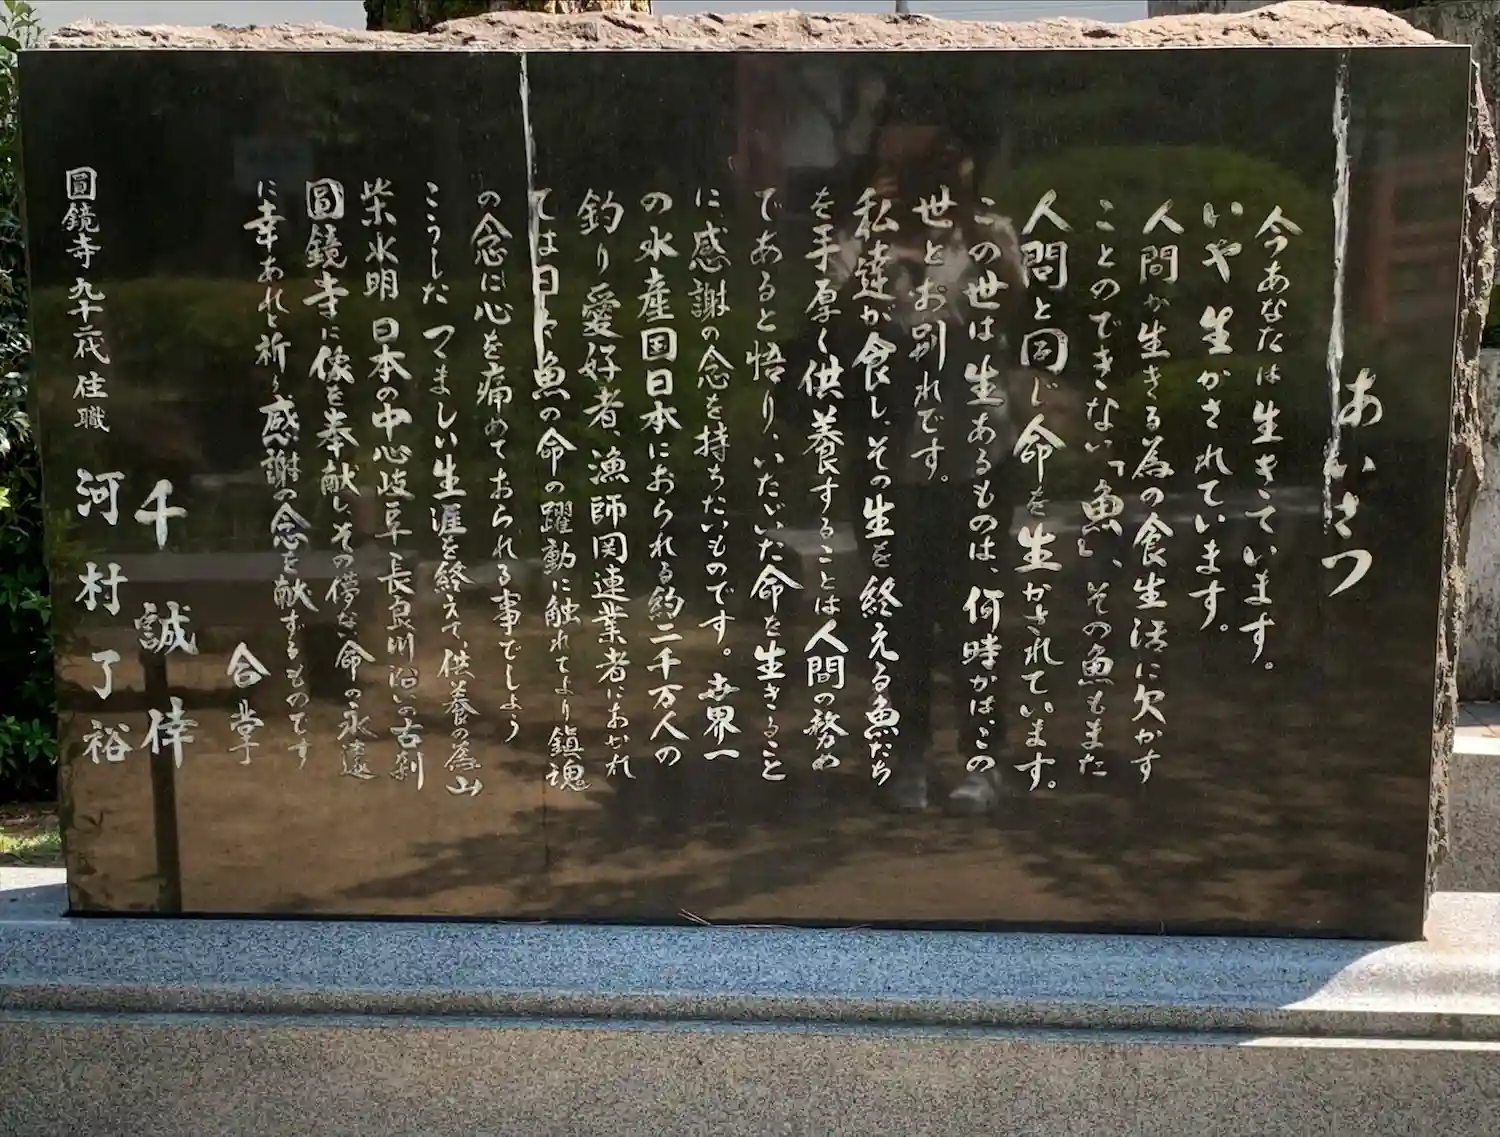 あいさつ
今あなたは生きています。
いや生かされています。
人間が生きる為の食生活に欠かす
ことのできない「魚」、その魚もまた
人間と同じ命を生かされています。
この世は生あるものは、何時かは、この
世とお別れです。
私達が食し、その生を終える魚たち
を手厚く供養することは人間の務め
であると悟り、いただいた命を生きること
に感謝の念を持ちたいものです。世界一
の水産国日本におられる約二千万人の
釣り愛好者、漁師関連業者におかれ
ては日々魚の命の躍動に触れてより鎮魂
の念に心を痛めておられる事でしょう
こうしたつましい生涯を終えて、供養の為山
紫水明日本の中心岐阜長良川沿いの古刹
圓鏡寺に像を奉献しその儚な命の永遠
に幸あれと祈り感謝の念を献ずるものです
合掌
千誠倖
河村了裕
圓鏡寺九十二代住職